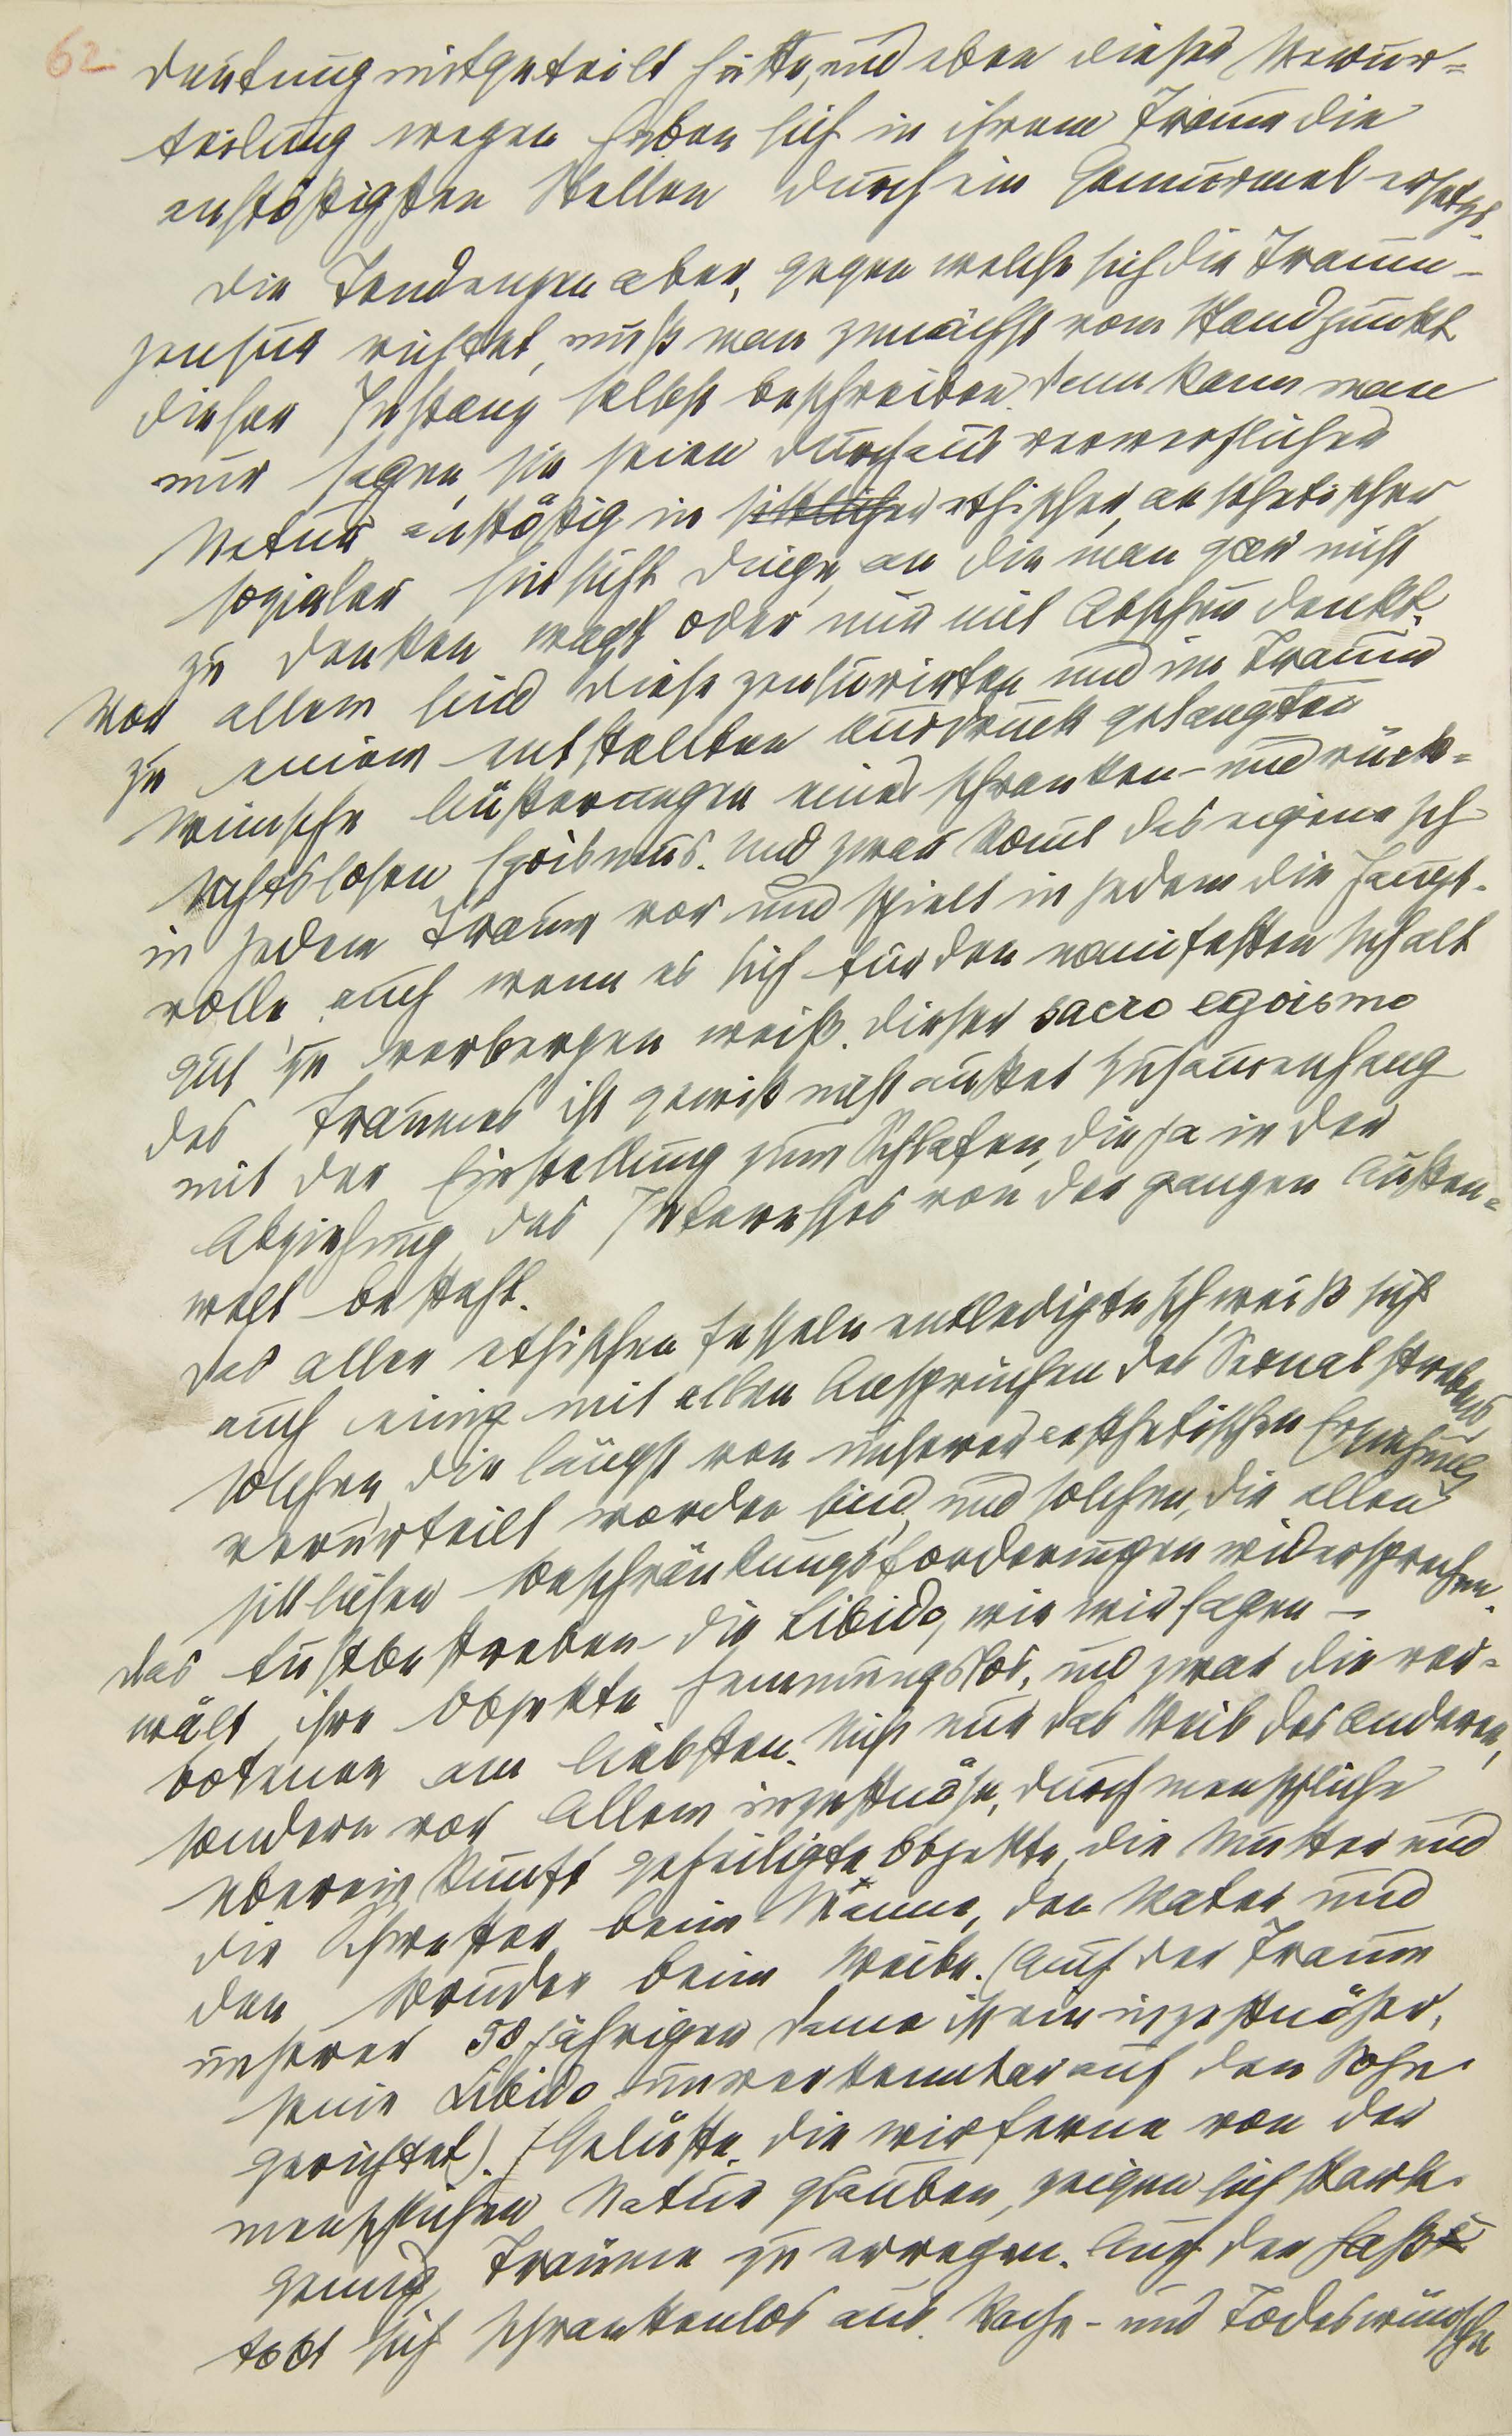 62
deutung mitgeteilt hätte, und eben dieser Verur=
teilung wegen haben sich in ihrem Traum die
anstößigsten Stellen durch ein Gemurmel ersetzt.
Die Tendenzen aber, gegen welche sich die Traum-
zensur richtet, muß man zunächst vom Standpunkt
dieser Instanz selbst beschreiben. Dann kann man
nur sagen, sie seien durchaus verwerflicher
Natur, anstößig in sittlicher ethischer, aesthetischer
sozialer Hinsicht, Dinge, an die man gar nicht
zu denken wagt oder nur mit Abscheu denkt.
Vor allem sind diese zensurirten und im Traum
zu einem entstellten Ausdruck gelangten
Wünsche Äußerungen eines schranken- und rück=
sichtslosen Egoismus. Und zwar komt das eigene Ich
in jedem Traum vor und spielt in jedem die Haupt-
rolle, auch wenn es sich für den manifesten Inhalt
gut zu verbergen weiß. Dieser sacro egoismo
des Traumes ist gewiß nicht außer Zusammenhang
mit der Einstellung zum Schlafen, die ja in der
Abziehung des Interesses von der ganzen Außen=
welt besteht.
Das aller ethischen Fesseln entledigte Ich weiß sich
auch einig mit allen Ansprüchen des Sexualstrebens
solchen, die längst von unserer aesthetischen Erziehung
verurteilt worden sind, und solchen, die allen
sittlichen Beschränkungsforderungen widersprechen.
Das Lustbestreben - die Libido, wie wir sagen -
wält ihre Objekte hemmungslos, und zwar die ver=
botenen am liebsten. Nicht nur das Weib des Anderen,
sondern vor Allem inzestuöse, durch menschliche
Übereinkunft geheiligte Objekte, die Mutter und
die Schwester beim Manne, den Vater und
den Bruder beim Weibe. (Auch der Traum
unserer 50jährigen Dame ist ein inzestuöser,
seine Libido unverkennbar auf den Sohn
gerichtet). Gelüste, die wir ferne von der
menschlichen Natur glauben, zeigen sich stark
genug, Träume zu erregen. Auch der Haß
tobt sich schrankenlos aus. Rache- und Todeswünsche